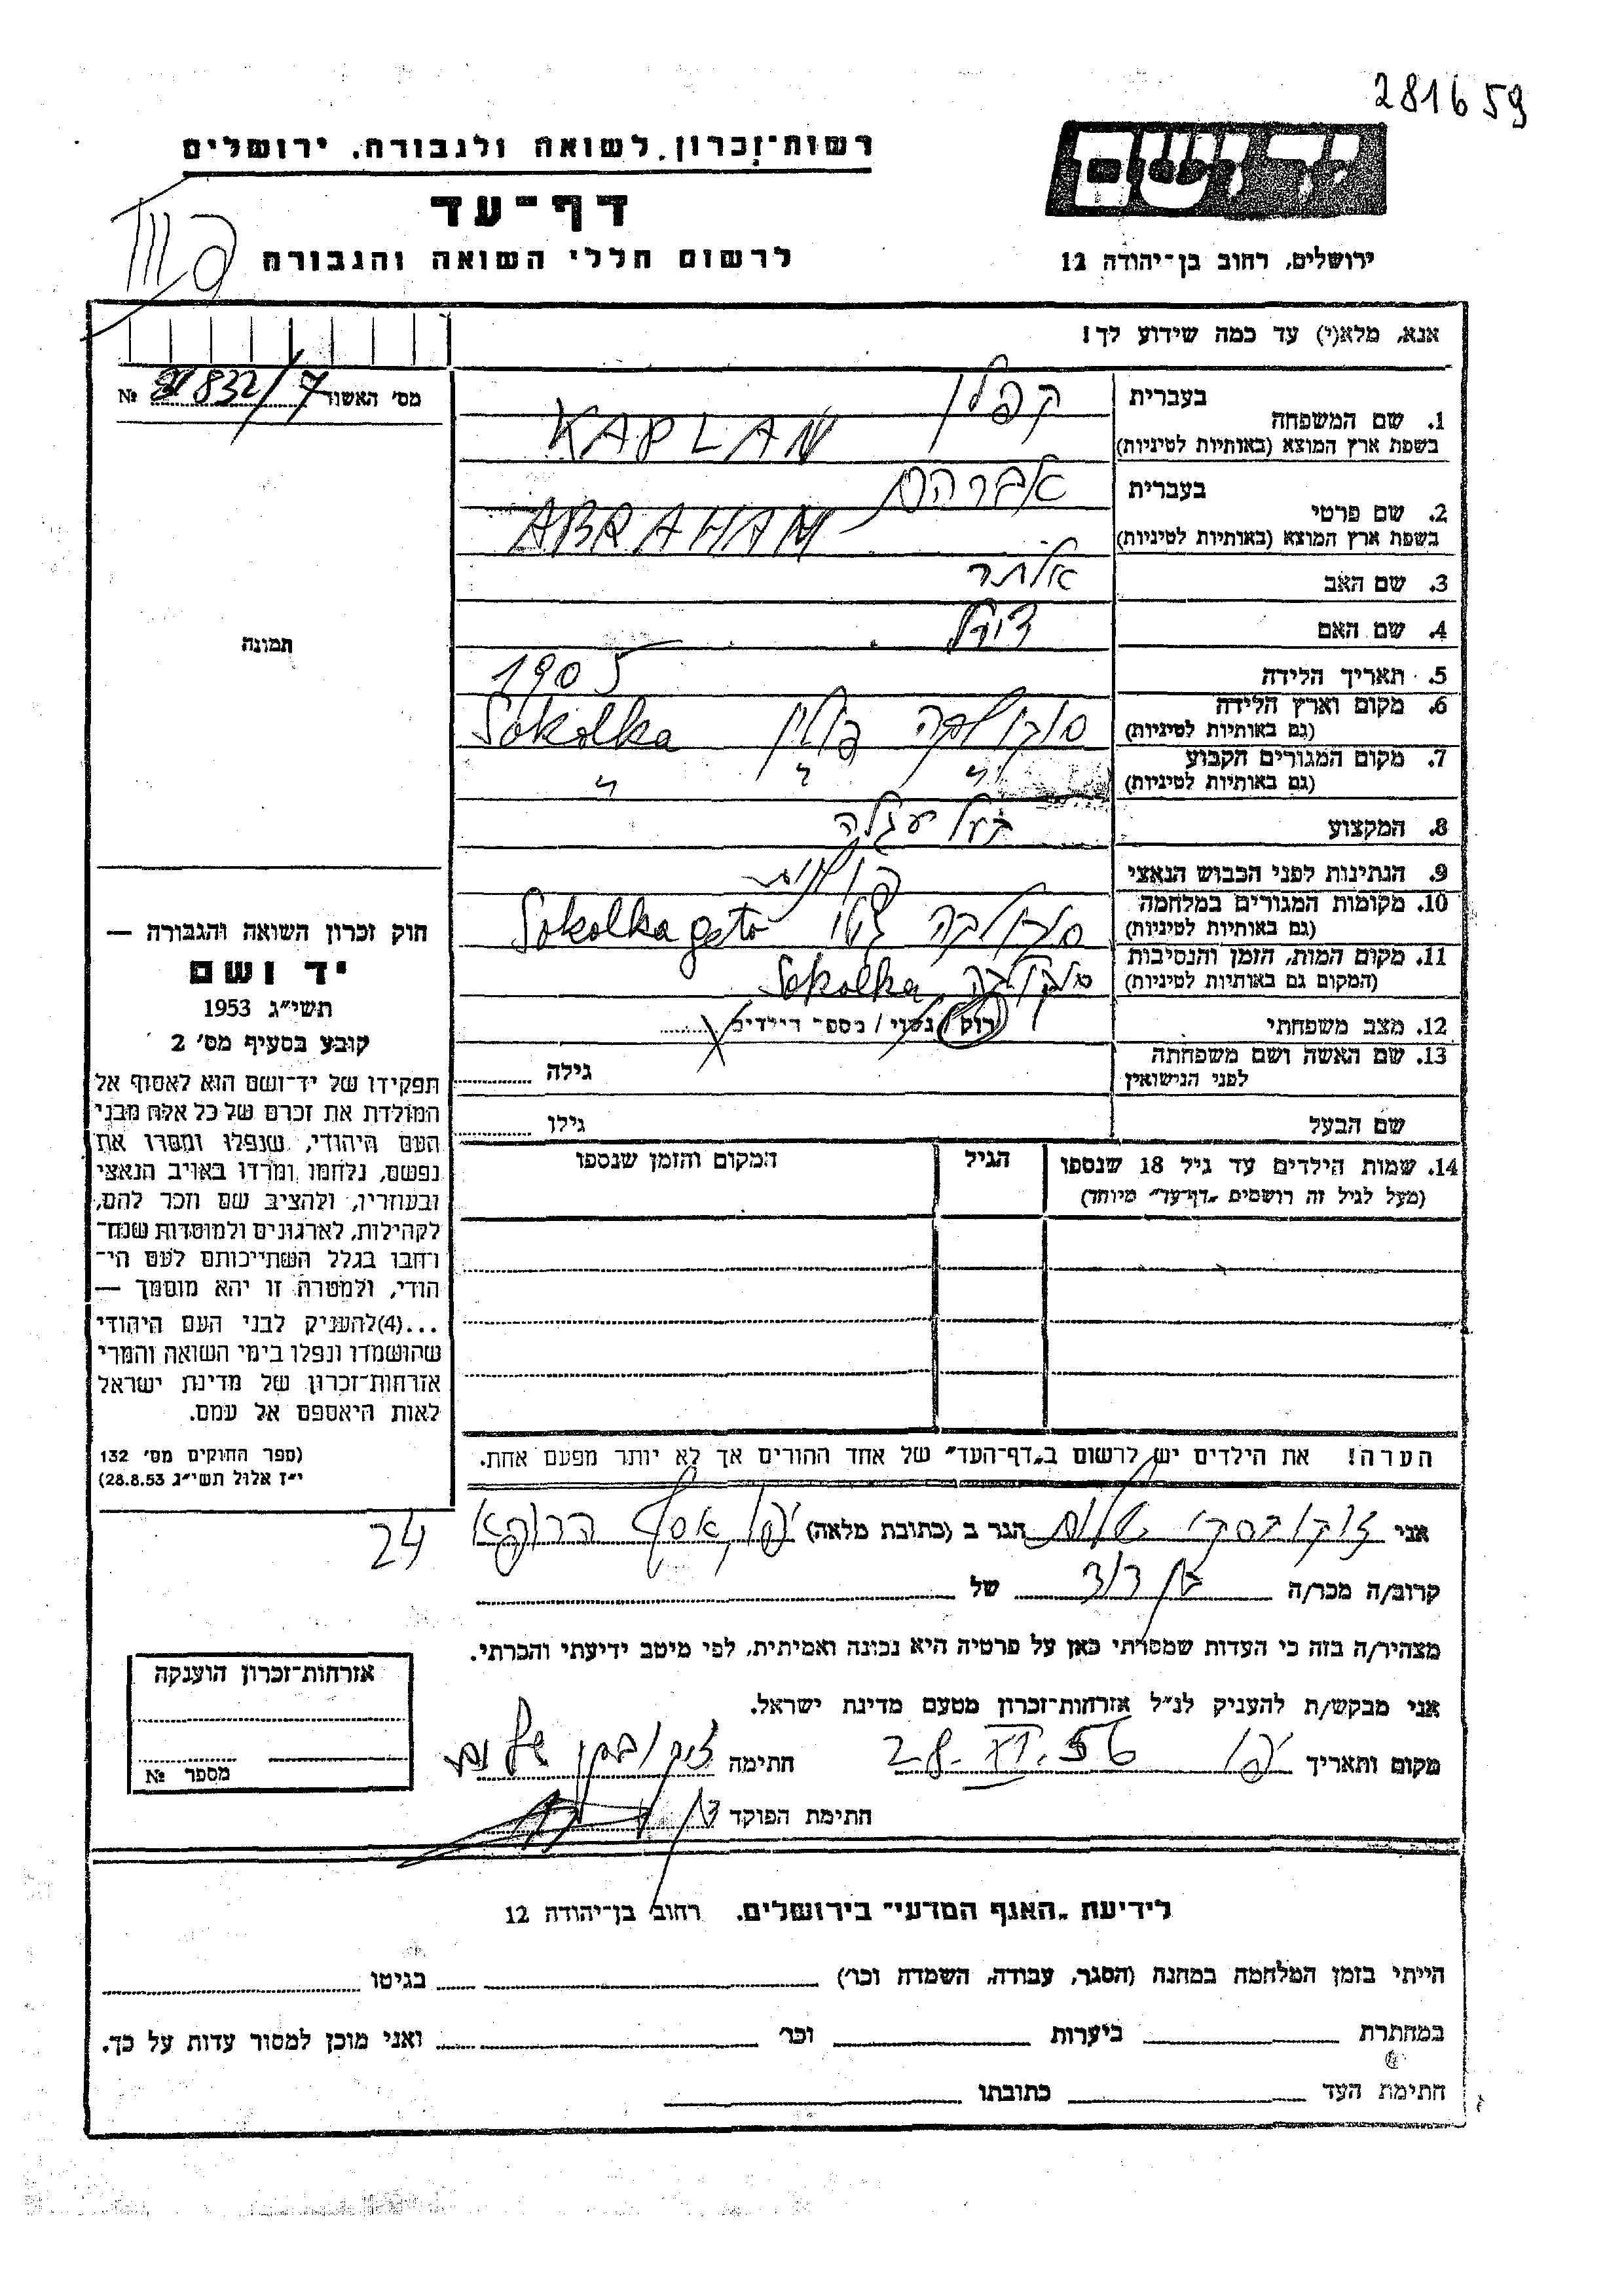 281659
רשות־זכרון לשואה ולגבורה, ירושלים
יד ושם
דף־עד
לרשום חללי השואה והגבורה
ירושלים, רחוב בן־יהודה 12
אנא, מלא(י) עד כמה שידוע לך!
מס׳ האשור 7/21832 №
תמונה
1. שם המשפחה
בעברית קפלן
בשפת ארץ המוצא (באותיות לטיניות) KAPLAN
2. שם פרטי
בעברית אברהם
בשפת ארץ המוצא (באותיות לטיניות) ABRAHAM
3. שם האב אלתר
4. שם האם
5. תאריך הלידה 1905
6. מקום וארץ הלידה סוקולקה פולין Sokolka
(גם באותיות לטיניות)
7. מקום המגורים הקבוע " " "
(גם באותיות לטיניות)
8. המקצוע בעל עגלה
9. הנתינות לפני הכבוש הנאצי פולנית
10. מקומות המגורים במלחמה סוקולקה גטו Sokolka geto
(גם באותיות לטיניות)
11. מקום המות, הזמן והנסיבות סוקולקה Sokolka
(המקום גם באותיות לטיניות)
12. מצב משפחתי רווק / נשוי / מספר הילדים
13. שם האשה ושם משפחתה גילה
לפני הנישואין
שם הבעל גילו
14. שמות הילדים עד גיל 18 שנספו הגיל המקום והזמן שנספו
(מעל לגיל זה רושמים „דף־עד״ מיוחד)
הערה! את הילדים יש לרשום ב„דף־העד״ של אחד ההורים אך לא יותר מפעם אחת.
חוק זכרון השואה והגבורה —
יד ושם
תשי״ג 1953
קובע בסעיף מס׳ 2
תפקידו של יד־ושם הוא לאסוף אל
המולדת את זכרם של כל אלה מבני
העם היהודי, שנפלו ומסרו את
נפשם, נלחמו ומרדו באויב הנאצי
ובעוזריו, ולהציב שם וזכר להם,
לקהילות, לארגונים ולמוסדות שנח־
רחבו בגלל השתייכותם לעם הי־
הודי, ולמטרה זו יהא מוסמך —
...(4)להעניק לבני העם היהודי
שהושמדו ונפלו בימי השואה והמרי
אזרחות־זכרון של מדינת ישראל
לאות היאספם אל עמם.
(ספר החוקים מס׳ 132
י״ז אלול תשי״ג 28.8.53)
אני שלום הגר ב (כתובת מלאה) יפו, אסף הרופא 24
קרוב/ה מכר/ה בן דוד של
מצהיר/ה בזה כי העדות שמסרתי כאן על פרטיה היא נכונה ואמיתית, לפי מיטב ידיעתי והכרתי.
אני מבקש/ת להעניק לנ״ל אזרחות־זכרון מטעם מדינת ישראל.
מקום ותאריך יפו 28.XI.56 חתימה
חתימת הפוקד
אזרחות־זכרון הוענקה
מספר №
לידיעת „האגף המדעי״ בירושלים. רחוב בן־יהודה 12
הייתי בזמן המלחמה במחנה (הסגר, עבודה, השמדה וכו׳) בגיטו
במחתרת ביערות וכו׳ ואני מוכן למסור עדות על כך.
חתימת העד כתובתו